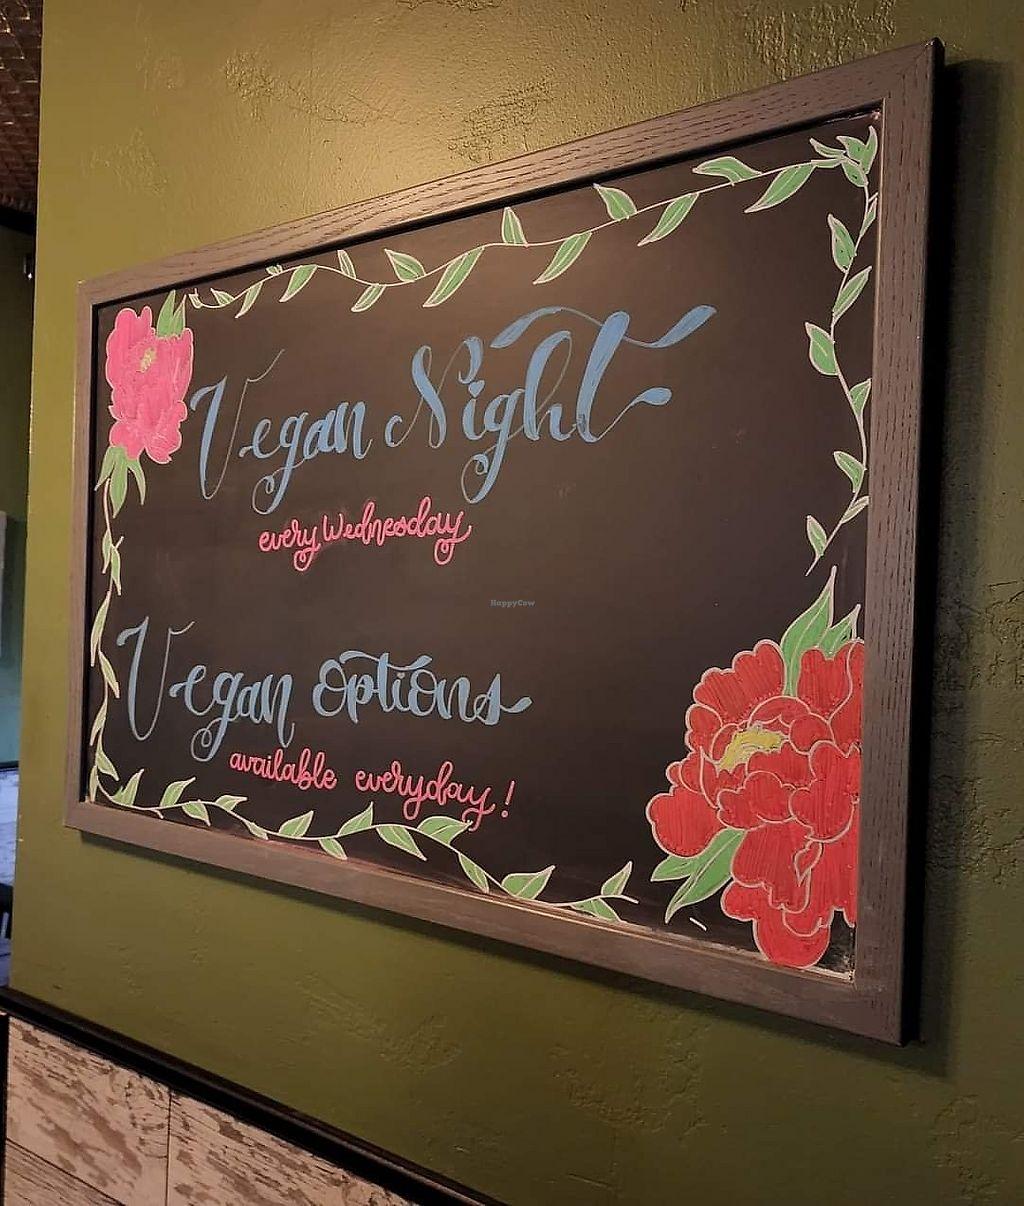 Vegan Night
every Wednesday
HappyCow
Vegan options
available everyday!